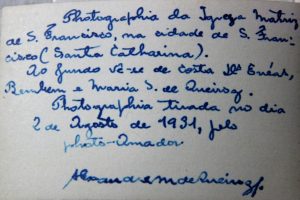 Photographia da Igreja Matriz
de S. Francisco, na cidade de S. Fran-
cisco (Santa Catharina).
Ao fundo vê-se de costa
e Maria S. de Queiroz.
Photographia tirada no dia
2 de Agosto de 1931, pelo
photo-amador
Alexandre M de Queiroz